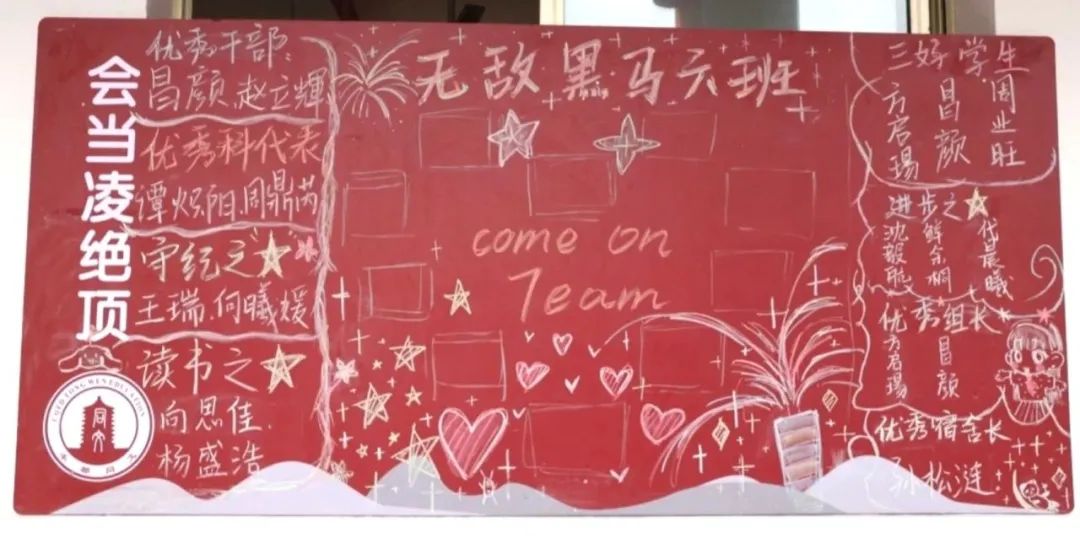 会当凌绝顶
优秀干部：
昌颜 赵立輝
优秀科代表
谭炽阳 周鼎芮
守纪之
王瑞 何曦媛
读书之
向思佳
杨盛浩
无敌黑马六班
come on
Team
三好学生
方启瑒
昌颜
周业旺
进步之
沈毅
鲜余桐
代晨曦
优秀组长
方启瑒
昌颜
优秀宿舍长
孙松涟